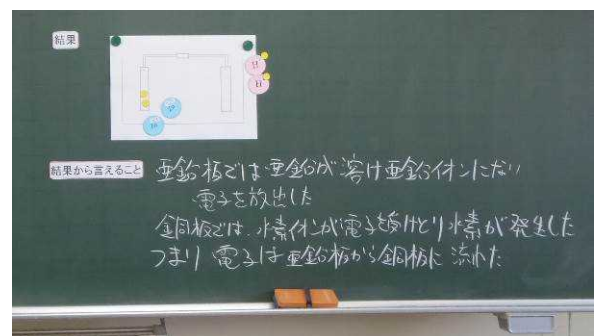 結果
結果から言えること
亜鉛板では亜鉛が溶け亜鉛イオンになり
電子を放出した
銅板では、水素イオンが電子を受けとり水素が発生した
つまり 電子は亜鉛板から銅板に流れた